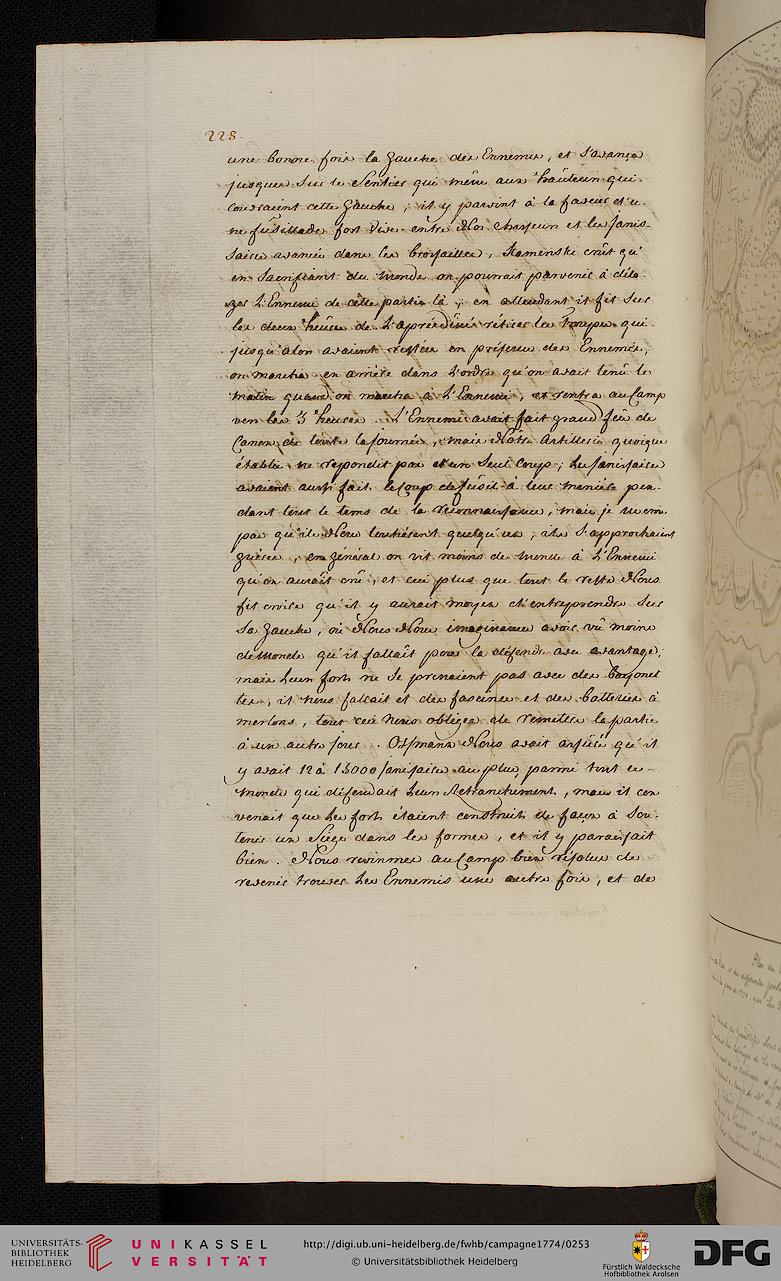 228.
une bonne fois la gauche des Ennemis, et s'avança
jusques sur le sentier qui mene aux hauteurs qui
couvraient cette gauche ; il y parvint à la faveur d'u-
ne fusillade fort vive entre Nos chasseurs et les janis-
saires avancés dans les brossailles, Kamenski crût qu'
en sacrifiant du monde on pourrait parvenir à délo-
ger l'Ennemi de cette partie là ; en attendant il fit sur
les deux heures de l'aprèsdinée rétirer les troupes qui
jusqu'alors avaient restées en présence des Ennemis,
on marcha en arrière dans l'ordre qu'on avait tenû le
matin quand on marcha à l'Ennemi, et rentra au Camp
vers les 3 heures. L'Ennemi avait fait grand feû de
Canon de toute la journée, mais Notre Artillerie quoique
établie ne répondit pas d'un seul coup ; les janissaires
avaient aussi fait le coup de fusil à leur maniere pen-
dant tout le tems de la reconnaissance, mais je ne
pas qu'ils Nous tuerent quelqu'un ; ils s'approchaient
guères, en général on vit moins de monde à l'Ennemi
qu'on aurait crû, et ceci plus que tout le reste Nous
fit croire qu'il y aurait moyen d'entreprendre sur
sa gauche, où Nous Nous imaginames avoir vû moins
de Monde qu'il fallait pour la défendre avec avantage ;
mais leurs forts ne se prenaient pas avec des bayonet
tes, il Nous fallait et des fascines et des batteries à
merlons, tout ceci Nous obligea de remettre la partie
à un autre jour. Osmans Nous avait assuré qu'il
y avait 12 à 15000 janissaires au plus parmi tout ce
monde qui défendait leurs Retranchements, mais il con
venait que les forts étaient construits de façon à sou-
tenir un siége dans les formes, et il y paraissait
bien. Nous revinmes au Camp bien résolus de
revenir trouver les Ennemis une autre fois, et de
UNIVERSITÄTS-
BIBLIOTHEK
HEIDELBERG
UNIKASSEL
VERSITÄT
http://digi.ub.uni-heidelberg.de/fwhb/campagne1774/0253
© Universitätsbibliothek Heidelberg
Fürstlich Waldecksche
Hofbibliothek Arolsen
DFG